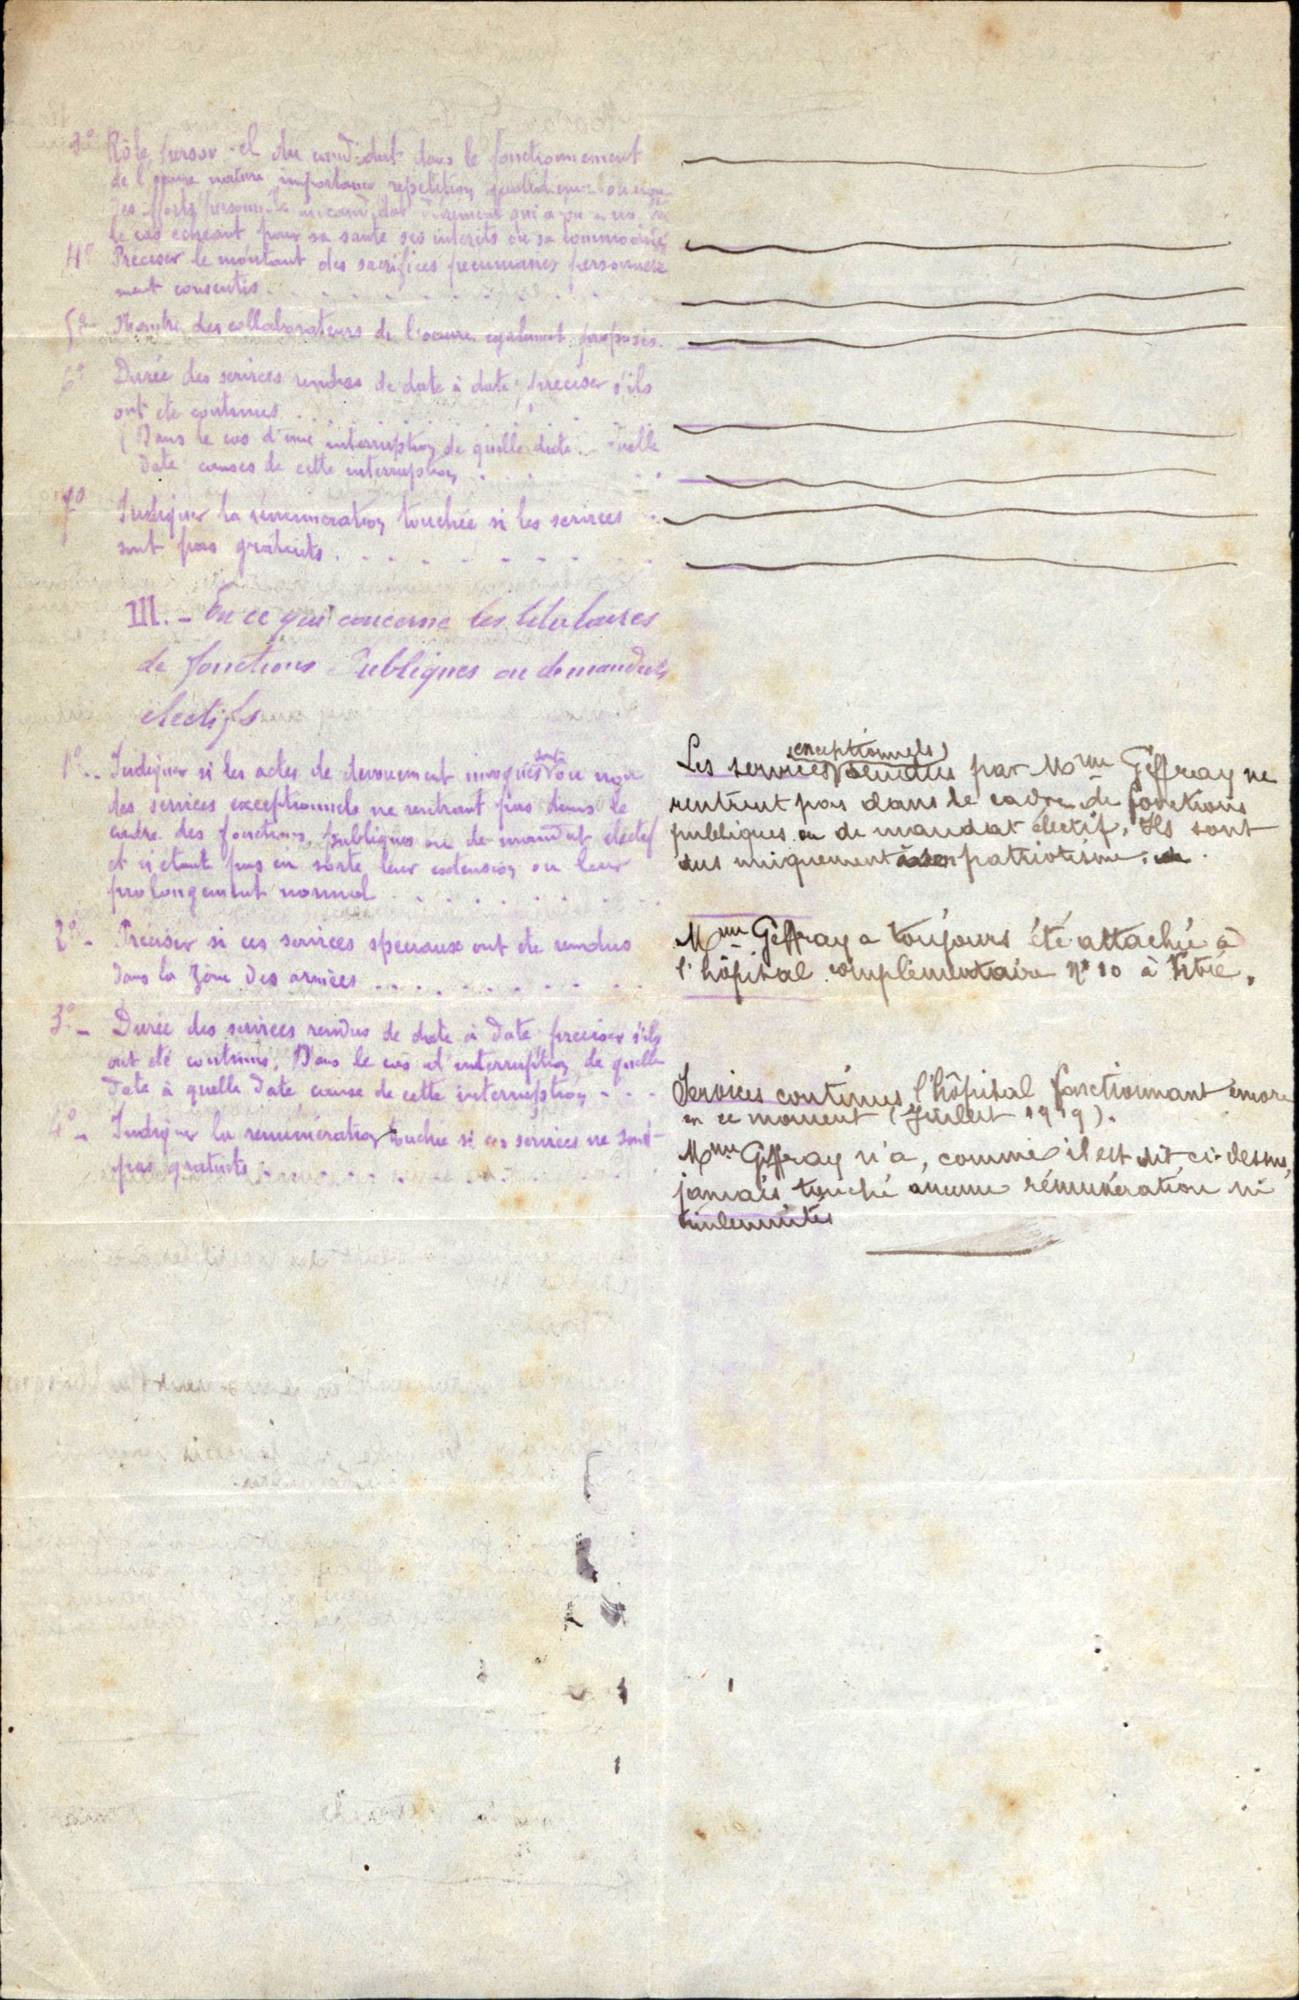 3º Rôle personnel du candidat dans le fonctionnement
de l'œuvre nature importance repetition quotidienne ou non
des efforts personnels du candidat
le cas echeant pour sa sante ses interets ou sa commodité
4º Preciser le montant des sacrifices pecuniaires personnelle
ment consentis
5º Nombre des collaborateurs de l'œuvre egalement proposés.
6º Durée des services rendus de date à date, preciser s'ils
ont ete continus
(Dans le cas d'une interruption de quelle date quelle
date causes de cette interruption
7º Indiquer la rémuneration touchée si les services
sont pas gratuits
III. - En ce qui concerne les titulaires
de fonctions Publiques ou de mandats
electifs
1º Indiquer si les actes de devouement invoqués sont ou non
des services exceptionnels ne rentrant pas dans le
cadre des fonctions publiques ou de mandat electif
et n'etant pas en sorte leur extension ou leur
prolongement normal
Les services exceptionnels rendus par Mme Geffray ne
rentrent pas dans le cadre de fonctions
publiques ou de mandat électif. Ils sont
dus uniquement à son patriotisme.
2º - Préciser si ces services speciaux ont ete rendus
dans la Zône des armées
Mme Geffray a toujours été attachée à
l'hôpital complémentaire Nº 10 à Vitré.
3º - Durée des services rendus de date à date preciser s'ils
ont été continus. Dans le cas d'interruption de quelle
date à quelle date cause de cette interruption
Services continus, l'hôpital fonctionnant encore
en ce moment (Juillet 1919).
4º - Indiquer la remunération touchée si ces services ne sont
pas gratuits
Mme Geffray n'a, comme il est dit ci-dessus,
jamais touché aucune rémunération ni
indemnités